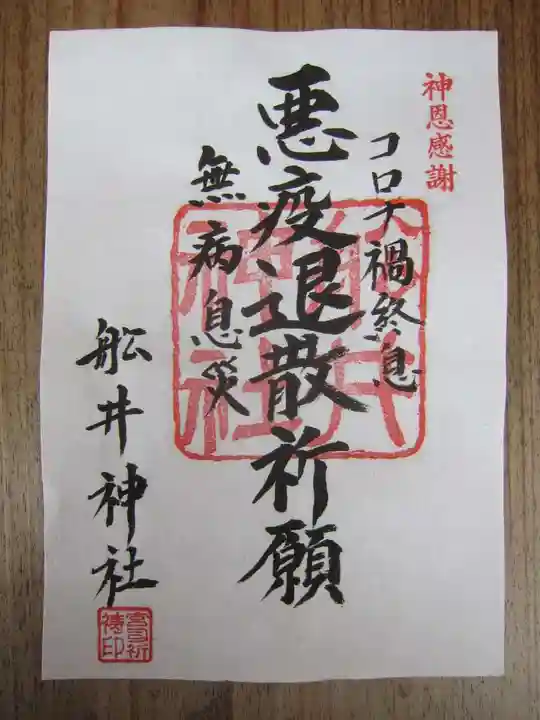 神恩感謝
コロナ禍終息
悪疫退散祈願
無病息災
舩井神社
宮司祈祷印